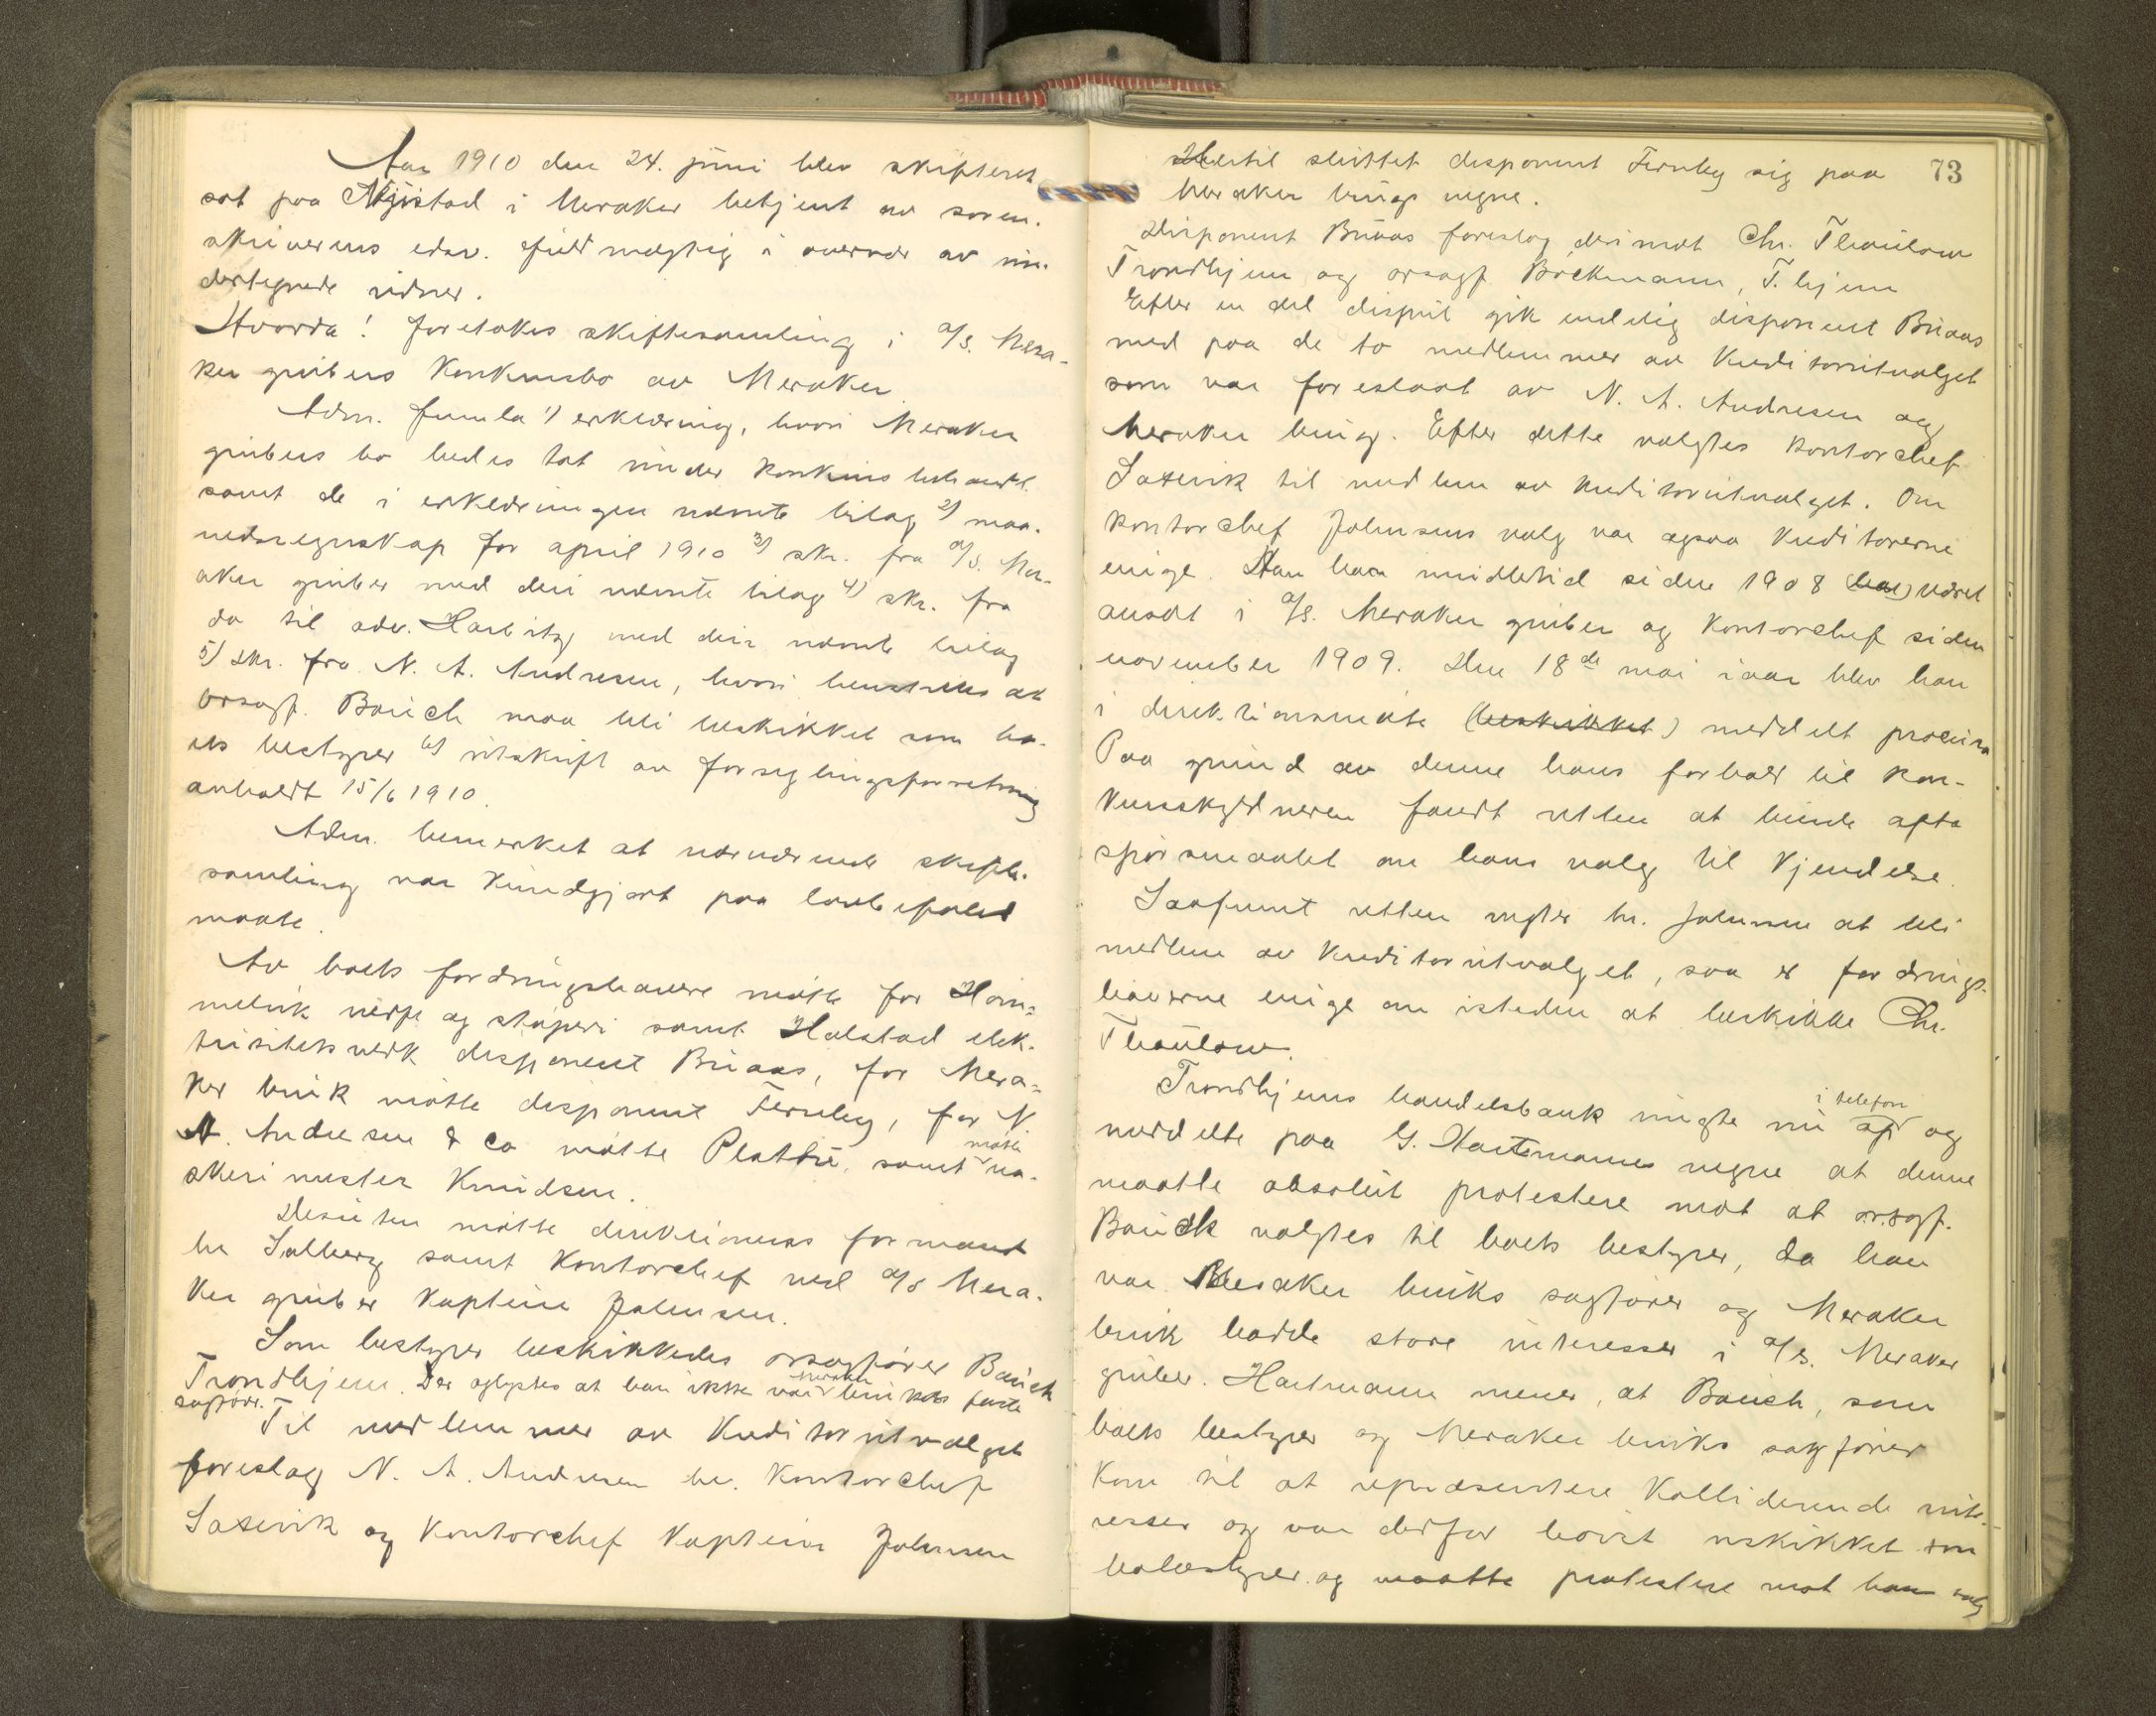 Aar 1910 den 24. juni blev skifteret
sat paa Nystad i Meraker betjent av soren-
skriverens edsv. fuldmægtig i overvær av un-
dertegnede vidner.
Hvorda! foretokes skiftesamling i A/S. Mera-
ker grubers konkursbo av Meraker
Adm. fremla 1) erklæring, hvori Meraker
grubers bo bedes tat under konkursbehandl.
samt de i erklæringen nævnte bilag 2) maa-
nedsregnskap for april 1910 3) skr. fra A/S. Mer-
aker gruber med deri nævnte bilag 4) skr. fra
do til adv. Harbitz med deri nævnte bilag
5) skr. fra N. A. Andresen, hvori henstilles at
orsagf. Bauck maa bli beskikket som bo-
ets bestyrer 6) utskrift av forseglingsforretning
avholdt 15/6 1910.
Adm. bemerket at nærværende skifte-
samling var kundgjort paa lovbefalet
maate.
Av boets fordringshavere møtte for Hom-
melvik verft og støperi samt Halstad elek-
trisitetsverk disponent Buaas, for Mera-
ker bruk møtte disponent Fernley, for N.
A. Andresen & Co møtte Plathe, samt møtte va-
skerimester Knudsen.
Desuten møtte direktionens formand
hr Solberg samt kontorchef ved A/S Mera-
ker gruber kaptein Johnsen.
Som bestyrer beskikkedes orsagfører Bauck
Trondhjem. Der oplystes at han ikke var Meraker bruks faste
sagfører.
Til medlemmer av kreditorutvalget
foreslog N. A. Andresen hr. kontorchef
Saxevik og kontorchef kaptein Johnsen
73
Hertil sluttet disponent Fernley sig paa
Meraker brugs vegne.
Disponent Buaas foreslog derimot Chr. Thaulow
Trondhjem og orsagf Bøckmann, T. hjem
Efter en del disput gik endelig disponent Buaas
med paa de to medlemmer av kreditorutvalget
som var foreslaat av N. A. Andresen og
Meraker brug. Efter dette valgtes kontorchef
Saxevik til medlem av kreditorutvalget. Om
kontorchef Johnsens valg var ogsaa kreditorerne
enige. Han har imidlertid siden 1908 (har) været
ansat i A/S. Meraker gruber og kontorchef siden
november 1909. Den 18de mai iaar blev han
i direktionsmøte (beskikket) meddelt procura
Paa grund av denne hans forhold til kon-
kursskyldneren fandt retten at burde opta
spørsmaalet om hans valg til kjendelse.
Saafremt retten negter hr. Johnsen at bli
medlem av kreditorutvalget, saa er fordrings-
haverne enige om isteden at beskikke Chr.
Thaulow.
Trondhjems handelsbank ringte nu op i telefon og
meddelte paa G. Hartmanns vegne at denne
maatte absolut protestere mot at orsagf.
Bauck valgtes til boets bestyrer, da han
var Meraker bruks sagfører og Meraker
bruk hadde store interesser i A/S. Meraker
gruber. Hartmann mener, at Bauck, som
boets bestyrer og Meraker bruks sagfører
kom til at repræsentere kolliderende inte-
resser og var derfor høist uskikket som
bobestyrer og maatte protestere mot hans valg